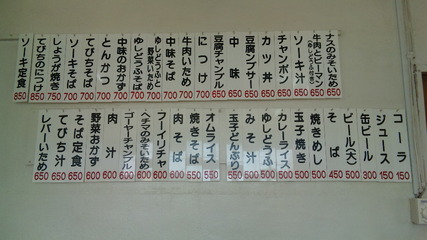 ナスのみそいため 650
牛肉とピーマン 650
(ゆしどうふ付き)
ソーキ汁 650
チャンポン 650
カツ丼 650
豆腐ンブサー 650
中味 650
豆腐チャンプル 650
につけ 700
牛肉いため 700
中味そば 700
ゆしどうふと野菜いため 700
中味のおかず 700
とんかつ 700
てびちそば 700
ソーキそば 700
しょうが焼き 750
てびちのにつけ 850
ソーキ定食 850
コーラ 150
ジュース 150
缶ビール 300
ビール(大) 500
そば 450
焼きめし 500
玉子焼き 500
カレーライス 500
ゆしどうふ 500
みそ汁 500
玉子どんぶり 550
オムライス 550
焼きそば 550
肉そば 600
フーイリチャ 600
ヘチマのみそいため 600
ゴーヤーチャンプル 600
肉汁 600
野菜おかず 600
そば定食 650
てびち汁 650
レバーいため 650